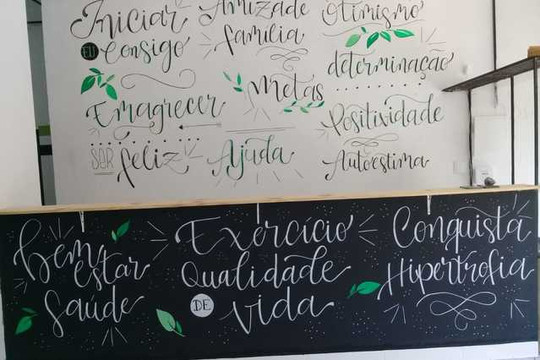 Iniciar
EU Consigo
Emagrecer
SER feliz
Amizade
família
Metas
Ajuda
Otimismo
determinação
Positividade
Autoestima
Bem
estar
Saúde
Exercício
Qualidade
DE vida
Conquista
Hipertrofia